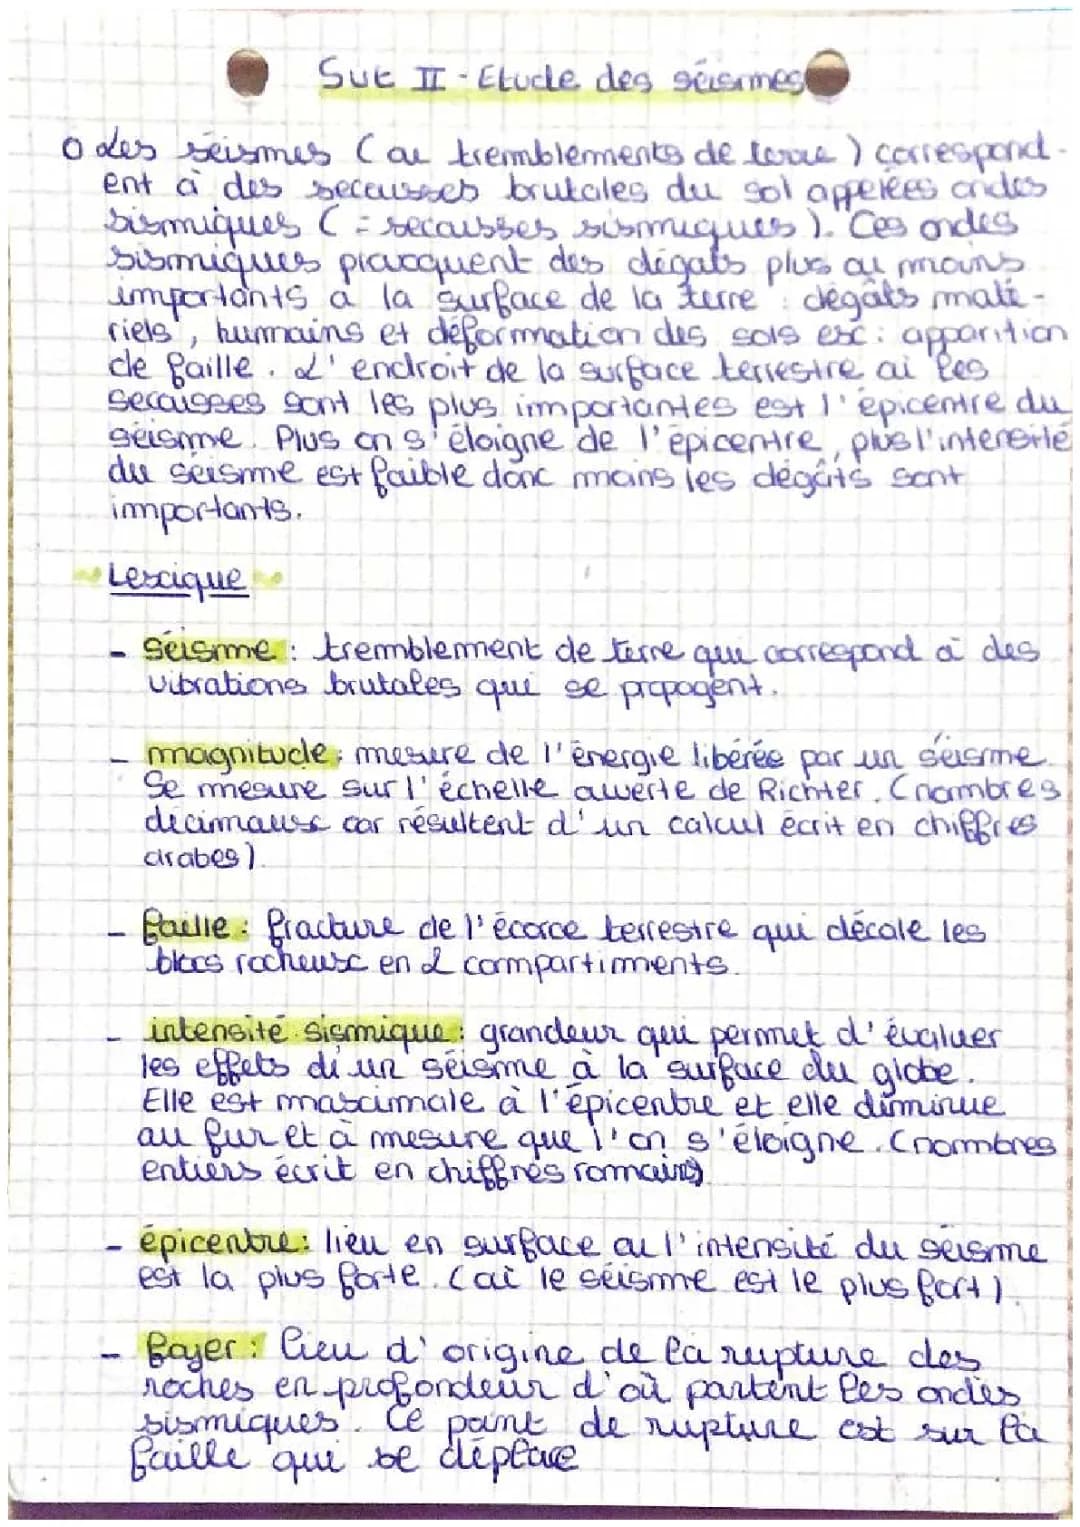 SVT II - Etude des séismes
o Les séismes (ou tremblements de terre) correspond-
ent à des secousses brutales du sol appelées ondes
sismiques (= secousses sismiques). Ces ondes
sismiques provoquent des dégats plus ou moins
importants à la surface de la terre : dégâts maté-
riels, humains et déformation des sols ex : apparition
de faille. L'endroit de la surface terrestre où les
secousses sont les plus importantes est l'épicentre du
séisme. Plus on s'éloigne de l'épicentre, plus l'intensité
du séisme est faible donc moins les dégâts sont
importants.
Lexique
- séisme : tremblement de terre qui correspond à des
vibrations brutales qui se propagent.
- magnitude : mesure de l'énergie libérée par un séisme.
Se mesure sur l'échelle ouverte de Richter. (nombres
décimaux car résultent d'un calcul écrit en chiffres
arabes)
- faille : fracture de l'écorce terrestre qui décale les
blocs rocheux en 2 compartiments.
- intensité sismique : grandeur qui permet d'évaluer
les effets d'un séisme à la surface du globe.
Elle est maximale à l'épicentre et elle diminue
au fur et à mesure que l'on s'éloigne. (nombres
entiers écrit en chiffres romains)
- épicentre : lieu en surface ou l'intensité du séisme
est la plus forte. (où le séisme est le plus fort).
- foyer : lieu d'origine de la rupture des
roches en profondeur d'où partent les ondes
sismiques. Ce point de rupture est sur la
faille qui se déplace